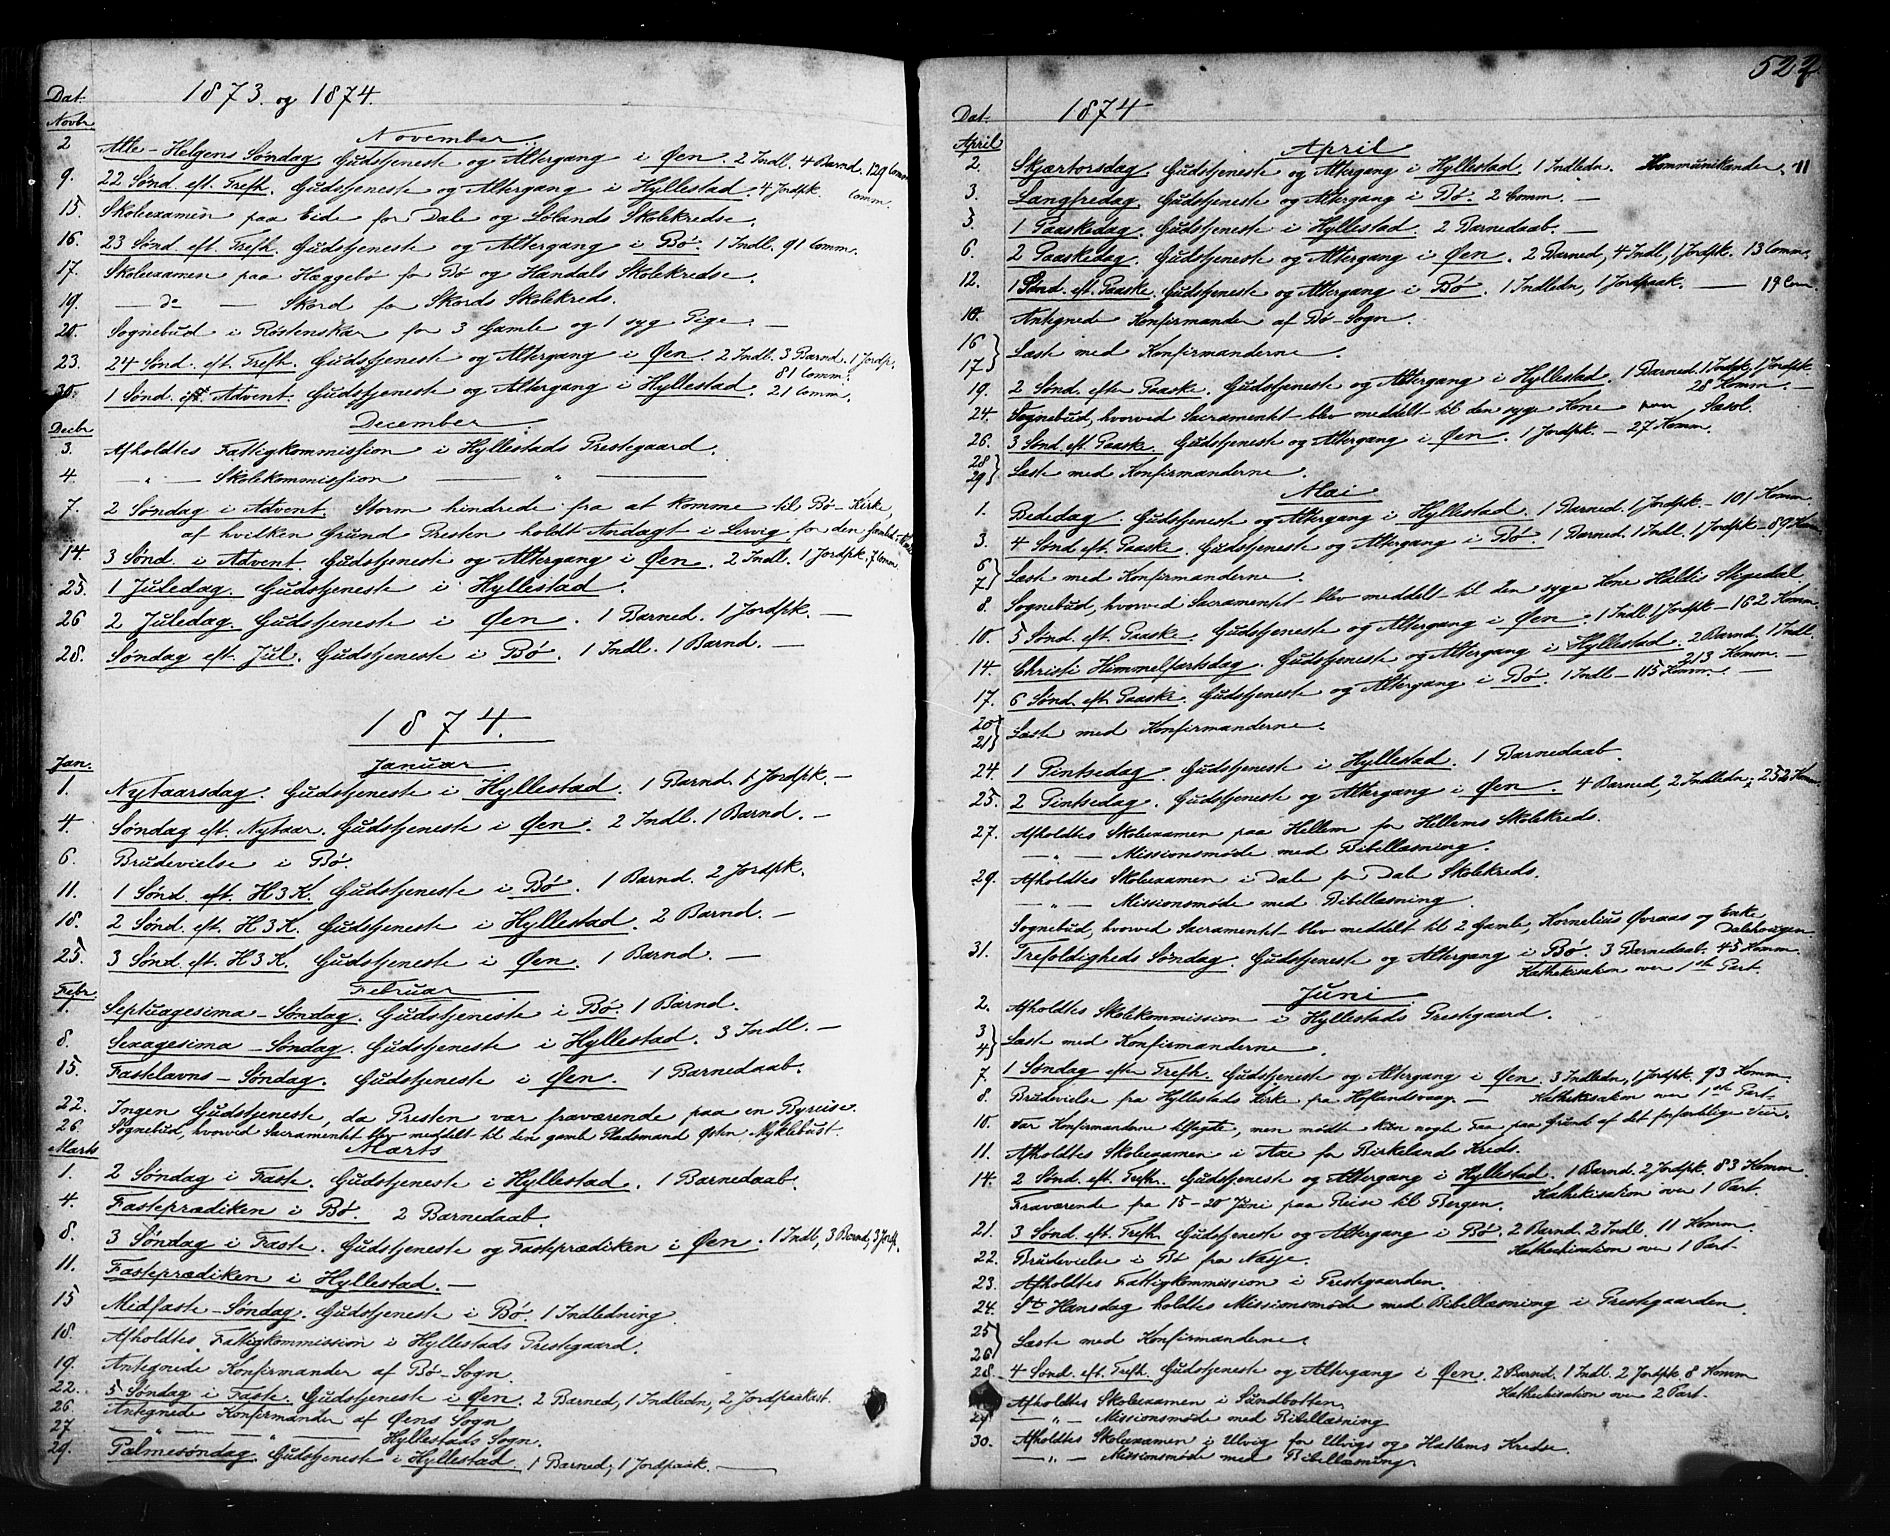 1873. og 1874.
Dat.
Novbr.
November.
2 Alle-Helgens Søndag. Gudstjeneste og Altergang i Øen. 2 Indl. 4 Barnd. 129 Comm.
9. 22 Sønd. eft. Trefh. Gudstjeneste og Altergang i Hyllestad. 4 Jordpk. Comm.
15. Skoleexamen paa Eide for Dale og Sølands Skolekredse.
16. 23 Sønd. eft. Trefh. Gudstjeneste og Altergang i Bø. 1 Indl. 91 Comm.
17. Skoleexamen paa Hæggebø for Bø og Handals Skolekredse.
19. — do — Skord for Skords Skolekreds.
20. Sognebud i Røstenskar for 3 Gamle og 1 syg Pige. —
23. 24 Sønd. eft. Trefh. Gudstjeneste og Altergang i Øen. 2 Indl. 3 Barnd. 1 Jordp.
81 Comm.
30. 1 Sønd. eft. Advent. Gudstjeneste og Altergang i Hyllestad. 21 Comm.
Decbr.
December.
3. Afholdtes Fattigkommission i Hyllestads Prestegaard.
4. — " — Skolekommission — " —
7. 2 Søndag i Advent. Storm hindrede fra at komme til Bø-Kirke,
af hvilken Grund Presten holdt Andagt i Lervig for den
14. 3 Sønd. i Advent. Gudstjeneste og Altergang i Øen. 2 Indl. 1 Jordpk. 7 Comm.
25. 1 Juledag. Gudstjeneste i Hyllestad.
26 2 Juledag. Gudstjeneste i Øen. 1 Barned. 1 Jordpk. —
28. Søndag eft. Jul. Gudstjeneste i Bø. 1 Indl. 1 Barnd. —
1874.
Jan.
Januar.
1. Nytaarsdag. Gudstjeneste i Hyllestad. 1 Barnd. 1 Jordpk. —
4. Søndag eft. Nytaar. Gudstjeneste i Øen. 2 Indl. 1 Barnd. —
6. Brudevielse i Bø.
11. 1 Sønd. eft. H3K. Gudstjeneste i Bø. 1 Barnd. 2 Jordpk.
18. 2 Sønd. eft. H3K. Gudstjeneste i Hyllestad. 2 Barnd. —
25. 3 Sønd. eft. H3K. Gudstjeneste i Øen. 1 Barnd. —
Febr.
Februar.
1. Septuagesima-Søndag. Gudstjeneste i Bø. 1 Barnd.
8. Sexagesima-Søndag. Gudstjeneste i Hyllestad. 3 Indl. —
15. Fastelavns-Søndag. Gudstjeneste i Øen. 1 Barnedaab.
22. Ingen Gudstjeneste, da Presten var fraværende paa en Byreise.
26. Sognebud, hvorved Sacramentet blev meddelt til den gamle Pladsmand John Nyklebust.
Marts
Marts
1. 2 Søndag i Faste. Gudstjeneste i Hyllestad. 1 Barnedaab.
4. Fasteprædiken i Bø. 2 Barnedaab.
8. 3 Søndag i Faste. Gudstjeneste og Fasteprædiken i Øen. 1 Indl, 3 Barnd, 3 Jordp.
11. Fasteprædiken i Hyllestad. —
15 Midfaste-Søndag. Gudstjeneste i Bø. 1 Indledning.
18. Afholdtes Fattigkommission i Hyllestads Prestegaard.
19. Antegnede Konfirmander af Bø-Sogn.
22. 5 Søndag i Faste. Gudstjeneste i Øen. 2 Barned, 1 Indledn, 2 Jordpaakast.
26 Antegnede Konfirmander af Øens Sogn.
27 — " — " — Hyllestads Sogn.
29. Palmesøndag. Gudstjeneste i Hyllestad. 1 Barned, 1 Jordpaak. —
522
1874
Dat.
April
April
2. Skjærtorsdag. Gudstjeneste og Altergang i Hyllestad. 1 Indledn. Kommunikander, 11
3. Langfredag. Gudstjeneste og Altergang i Bø. 2 Comm. —
5. 1 Paaskedag. Gudstjeneste i Hyllestad. 2 Barnedaab. —
6. 2 Paaskedag. Gudstjeneste og Altergang i Øen. 2 Barned, 4 Indl, 1 Jordpk. 13 Comm.
12. 1 Sønd. eft. Paaske. Gudstjeneste og Altergang i Bø. 1 Indledn, 1 Jordpaak. — 19 Com.
14. Antegnede Konfirmander af Bø-Sogn.
16
17 } Læste med Konfirmanderne.
19. 2 Sønd. efter Paaske. Gudstjeneste og Altergang i Hyllestad. 1 Barned. 1 Indk. 1 Jordpk.
28 Komm. —
24. Sognebud, hvorved Sacramentet blev meddelt til den syge Kone paa Sæsol.
26. 3 Sønd. eft. Paaske. Gudstjeneste og Altergang i Øen. 1 Jordpk. — 27 Komm.
28
29 } Læste med Konfirmanderne.
Mai
1. Bededag. Gudstjeneste og Altergang i Hyllestad. 1 Barned. 1 Jordpk. — 101 Komm.
3. 4 Sønd. eft. Paaske. Gudstjeneste og Altergang i Bø. 1 Barned. 1 Indl. 1 Jordpk — 89 Kom
6
7 } Læste med Konfirmanderne.
8. Sognebud, hvorved Sacramentet blev meddelt til den syge Kone Hallis Stigedal.
10. 5 Sønd. eft. Paaske. Gudstjeneste og Altergang i Øen. 1 Indl. 1 Jordpk — 162 Komm.
14. Christi Himmelfartsdag. Gudstjeneste og Altergang i Hyllestad. 2 Barnd. 1 Indl.
213 Komm. —
17. 6 Sønd. eft. Paaske. Gudstjeneste og Altergang i Bø. 1 Indl — 115 Komm. —
20
21 } Læste med Konfirmanderne.
24. 1 Pintsedag. Gudstjeneste i Hyllestad. 1 Barnedaab.
25. 2 Pintsedag. Gudstjeneste og Altergang i Øen. 4 Barned, 2 Indledn, 252 Komm.
27. Afholdtes Skoleexamen paa Hellem for Hellems Skolekreds.
— " — Missionsmøde med Bibellæsning.
29. Afholdtes Skoleexamen i Dale for Dale Skolekreds.
— " — Missionsmøde med Bibellæsning.
Sognebud, hvorved Sacramentet blev meddelt til 2 Gamle, Kornelius Øvraas og Enke
Dalehougen.
31. Trefoldigheds Søndag. Gudstjeneste og Altergang i Bø. 3 Barnedaab. 45 Komm.
Kathekisation over 1ste Part.
Juni
2. Afholdtes Skolekommission i Hyllestads Prestgaard.
3
4 } Læste med Konfirmanderne.
7. 1 Søndag efter Trefh. Gudstjeneste og Altergang i Øen. 3 Indledn, 1 Jordpk. 93 Komm.
Kathekisation over 1ste Part.
8. Brudevielse fra Hyllestads Kirke fra Høflandsvaag. —
10. Var Konfirmanderne tilsagte, men mødte kun nogle Faa paa Grund af det forfærdelige Veir.
11. Afholdtes Skoleexamen i Aae for Birkelands Kreds.
14. 2 Sønd. eft. Trefh. Gudstjeneste og Altergang i Hyllestad. 1 Barnd. 2 Jordpk. 83 Komm.
Kathekisation over 1 Part.
Fraværende fra 15-20 Juni paa Reise til Bergen.
21. 3 Sønd. eft. Trefh. Gudstjeneste og Altergang i Bø. 2 Barnd. 2 Indl. 11 Komm.
Kathekisation over 1 Part.
22. Brudevielse i Bø fra Nasje.
23. Afholdtes Fattigkommission i Prestegaarden.
24. St Hansdag holdtes Missionsmøde med Bibellæsning i Prestegaarden.
25
26 } Læste med Konfirmanderne.
28. 4 Sønd. eft. Trefh. Gudstjeneste og Altergang i Øen. 2 Barnd. 1 Indl. 2 Jordpk. 8 Komm
Kathekisation over 2 Part.
Afholdtes Skoleexamen i Sundbotten.
29. — " — Missionsmøde med Bibellæsning
30. Afholdtes Skoleexamen i Ulvig for Ulvigs og Hatlems Kredse.
— " — Missionsmøde med Bibellæsning.